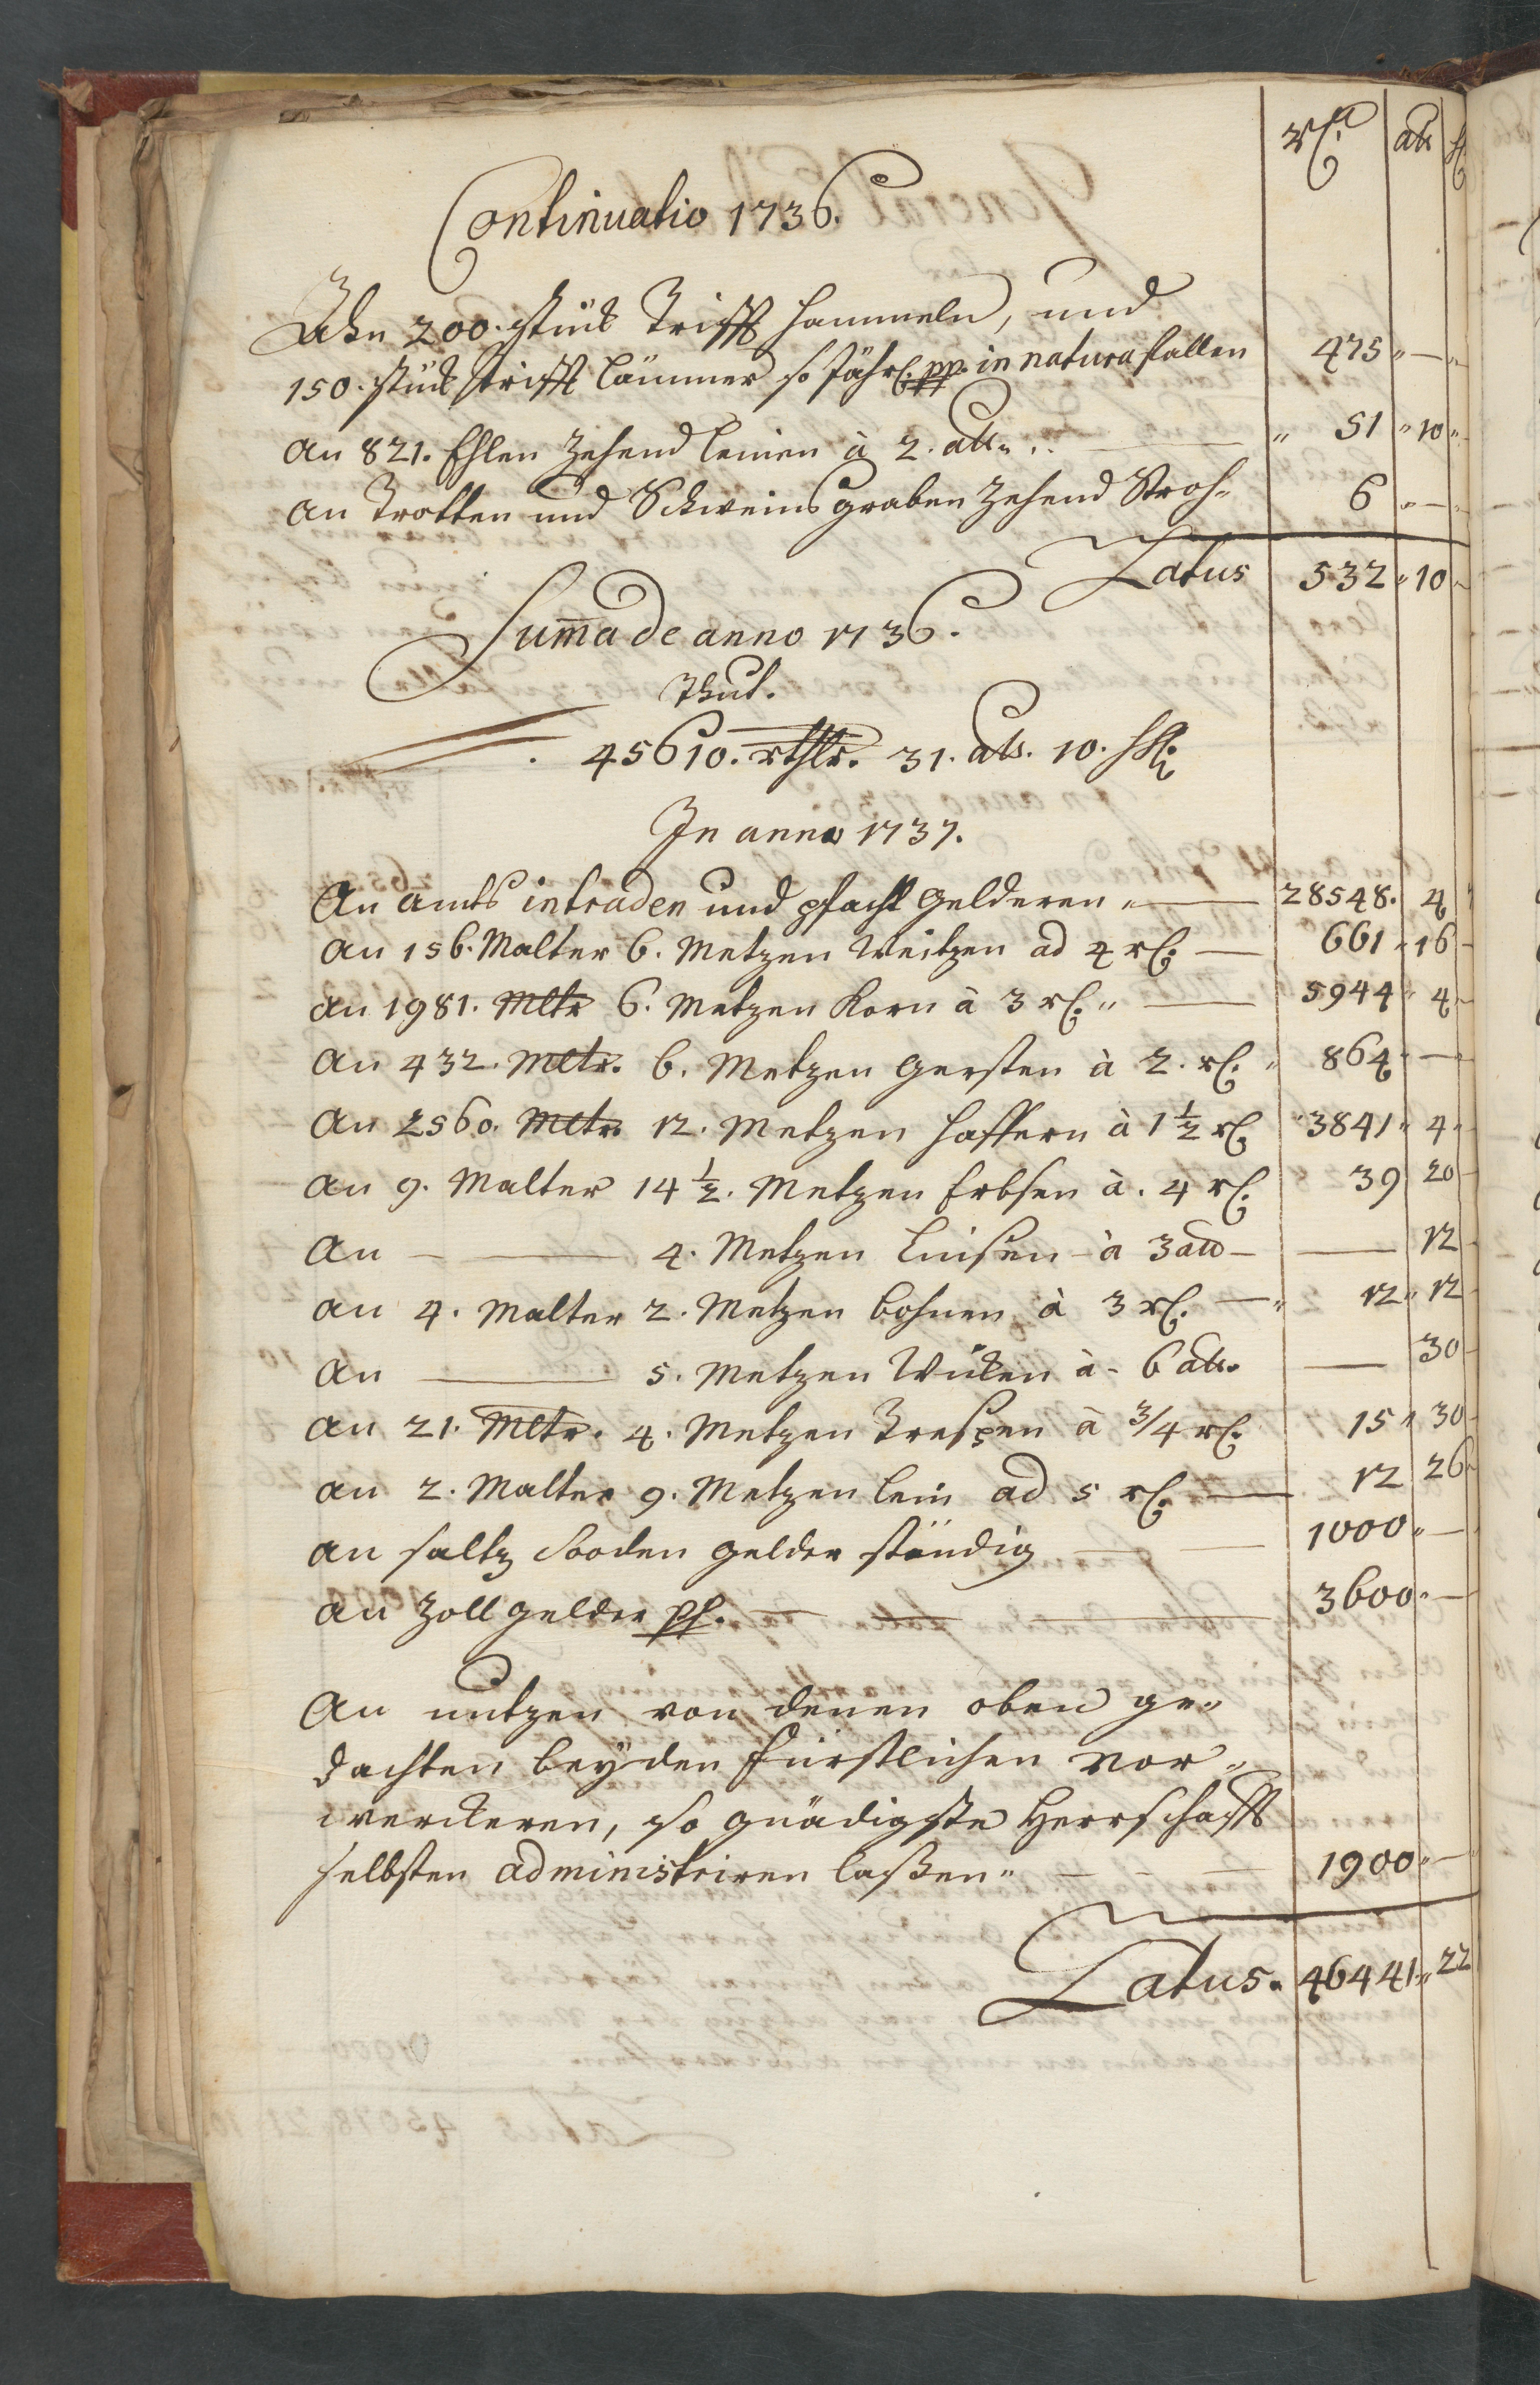 rthl. alb hl
Continuatio 1736.
Ahn 200. stück Trifft Hammeln, und
150. stück trifft Lämmer so Jährl. pp. in natura fallen 475 " — "
an 821. Ehlen Zehend leinen à 2. alb. — " 51 " 10 "
an Trotten und Schweinsgraben Zehend Stroh " 6 " — "
Latus 532 " 10 "
Summa de anno 1736.
Thut.
45610. rthlr. 31. alb. 10. hlr.
In anno 1737.
An amts intraden und pfacht geldern " — 28548. 4 "
an 156. Malter 6. Metzen Weitzen ad 4 rl. — 661 " 16 —
an 1981. Mltr 6. Metzen Korn à 3 rl. " — 5944 " 4 —
an 432. Mltr. 6. Metzen gersten à 2. rl. " 864 " —
an 2560. Mltr 12. Metzen haffern à 1 ½ rl. " 3841 " 4 "
an 9. Malter 14 ½. Metzen Erbsen à. 4 rl. 39 20 —
an — 4. Metzen Linsen à 3 alb — — 12 —
an 4. Malter 2. Metzen bohnen à 3 rl. — " 12 " 12 —
an — 5. Metzen Wicken à - 6 alb. — 30 —
an 21. Mltr. 4. Metzen Trespen à 3/4 rl. 15 " 30 —
an 2. Malter 9. Metzen lein ad 5 rl. — 12 26 "
an saltz Sooden gelder ständig — — 1000 " —
an Zoll gelder pp. — — — 3600 " —
An nutzen von denen oben ge„
dachten beyden fürstlichen Vor„
werckeren, so gnädigste Herrschafft
selbsten administriren laßen " — — — 1900 " —
Latus. 46441 " 22